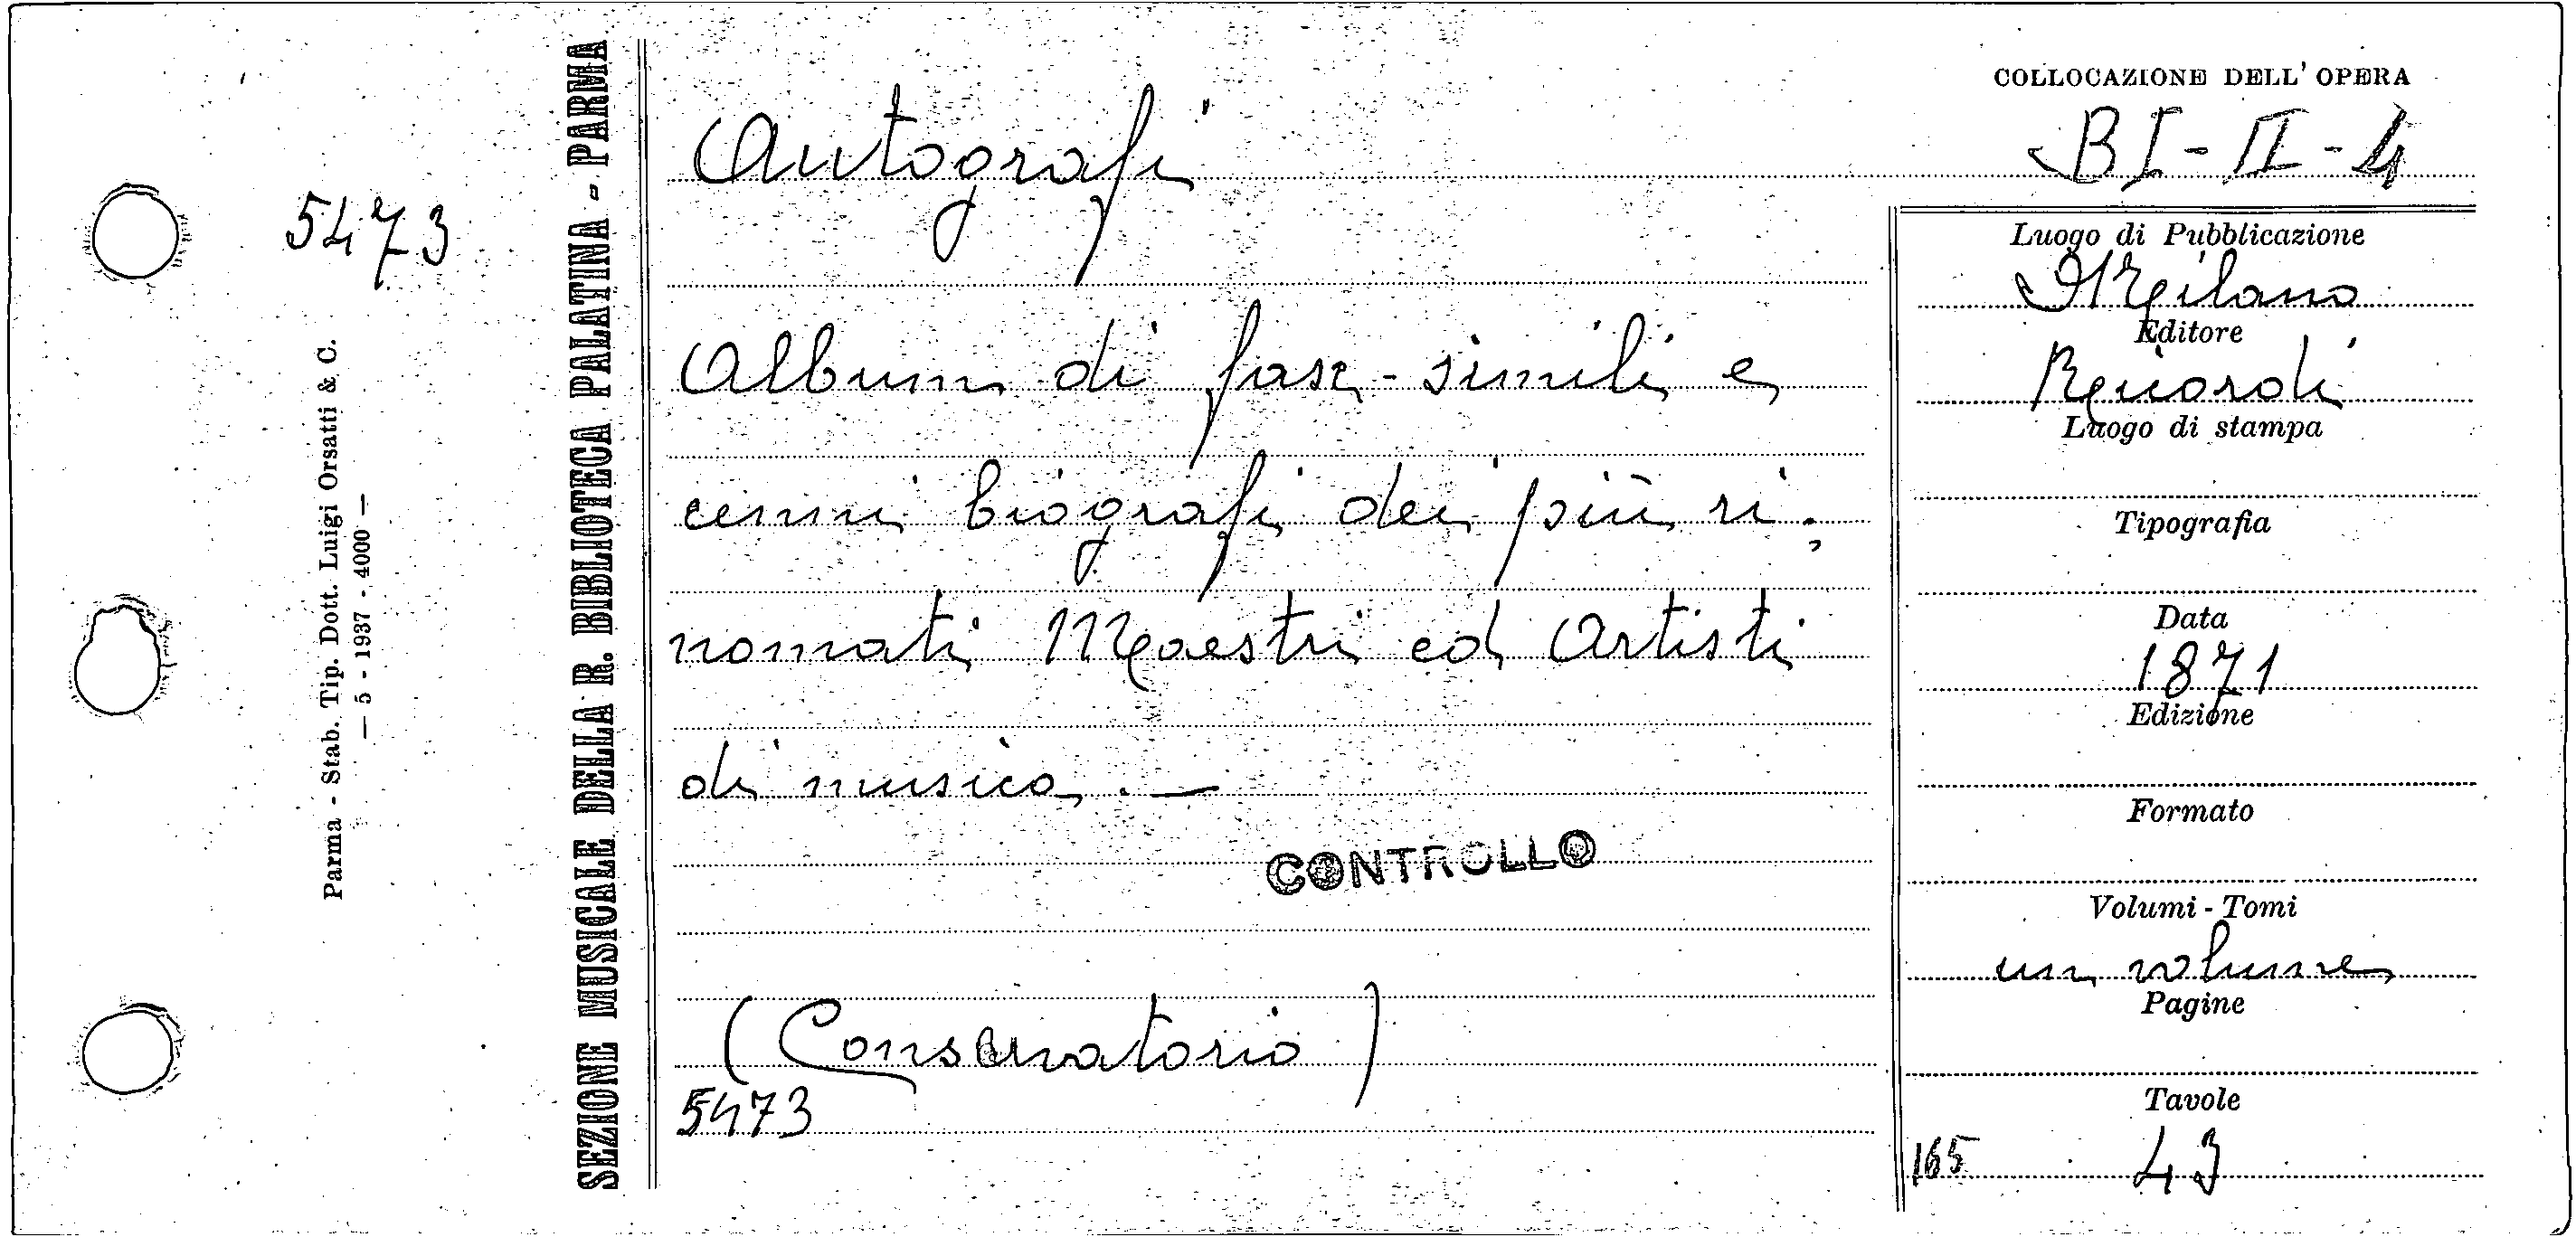 5473
Parma - Stab. Tip. Dott. Luigi Orsatti & C.
— 5 - 1937 - 4000 —
SEZIONE MUSICALE DELLA R. BIBLIOTECA PALATINA - PARMA
Autografi
Album di fasz-simili e
cenni biografi dei più ri:
nomati Maestri ed Artisti
di musica. —
CONTROLLO
(Conservatorio)
5473
COLLOCAZIONE DELL'OPERA
BI-II-4
Luogo di Pubblicazione
Milano
Editore
Ricordi
Luogo di stampa
Tipografia
Data
1871
Edizione
Formato
Volumi - Tomi
un volume
Pagine
Tavole
165
43